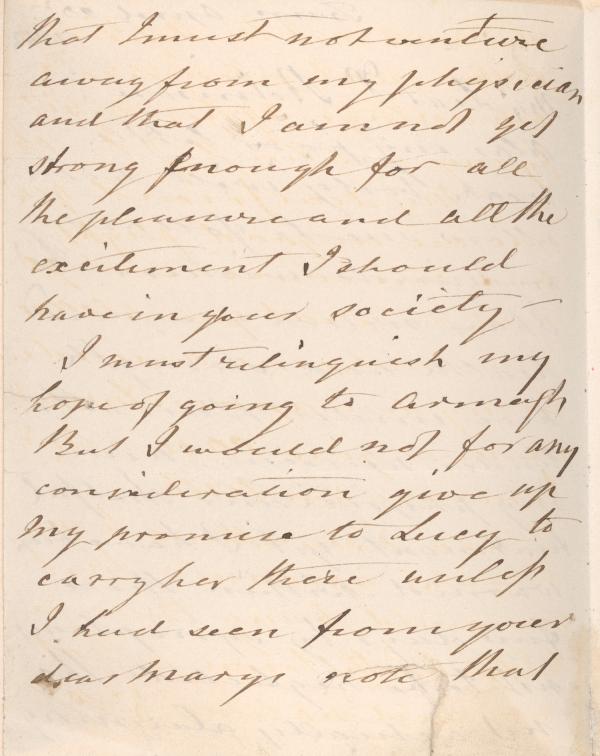 that I must not venture
away from my physician
and that I am not yet
strong enough for all
the pleasure and all the
excitement I should
have in your society –
I must relinquish my
hope of going to Armagh
But I would not for any
consideration give up
my promise to Lucy to
carry her there unless
I had seen from your
dear Marys note that